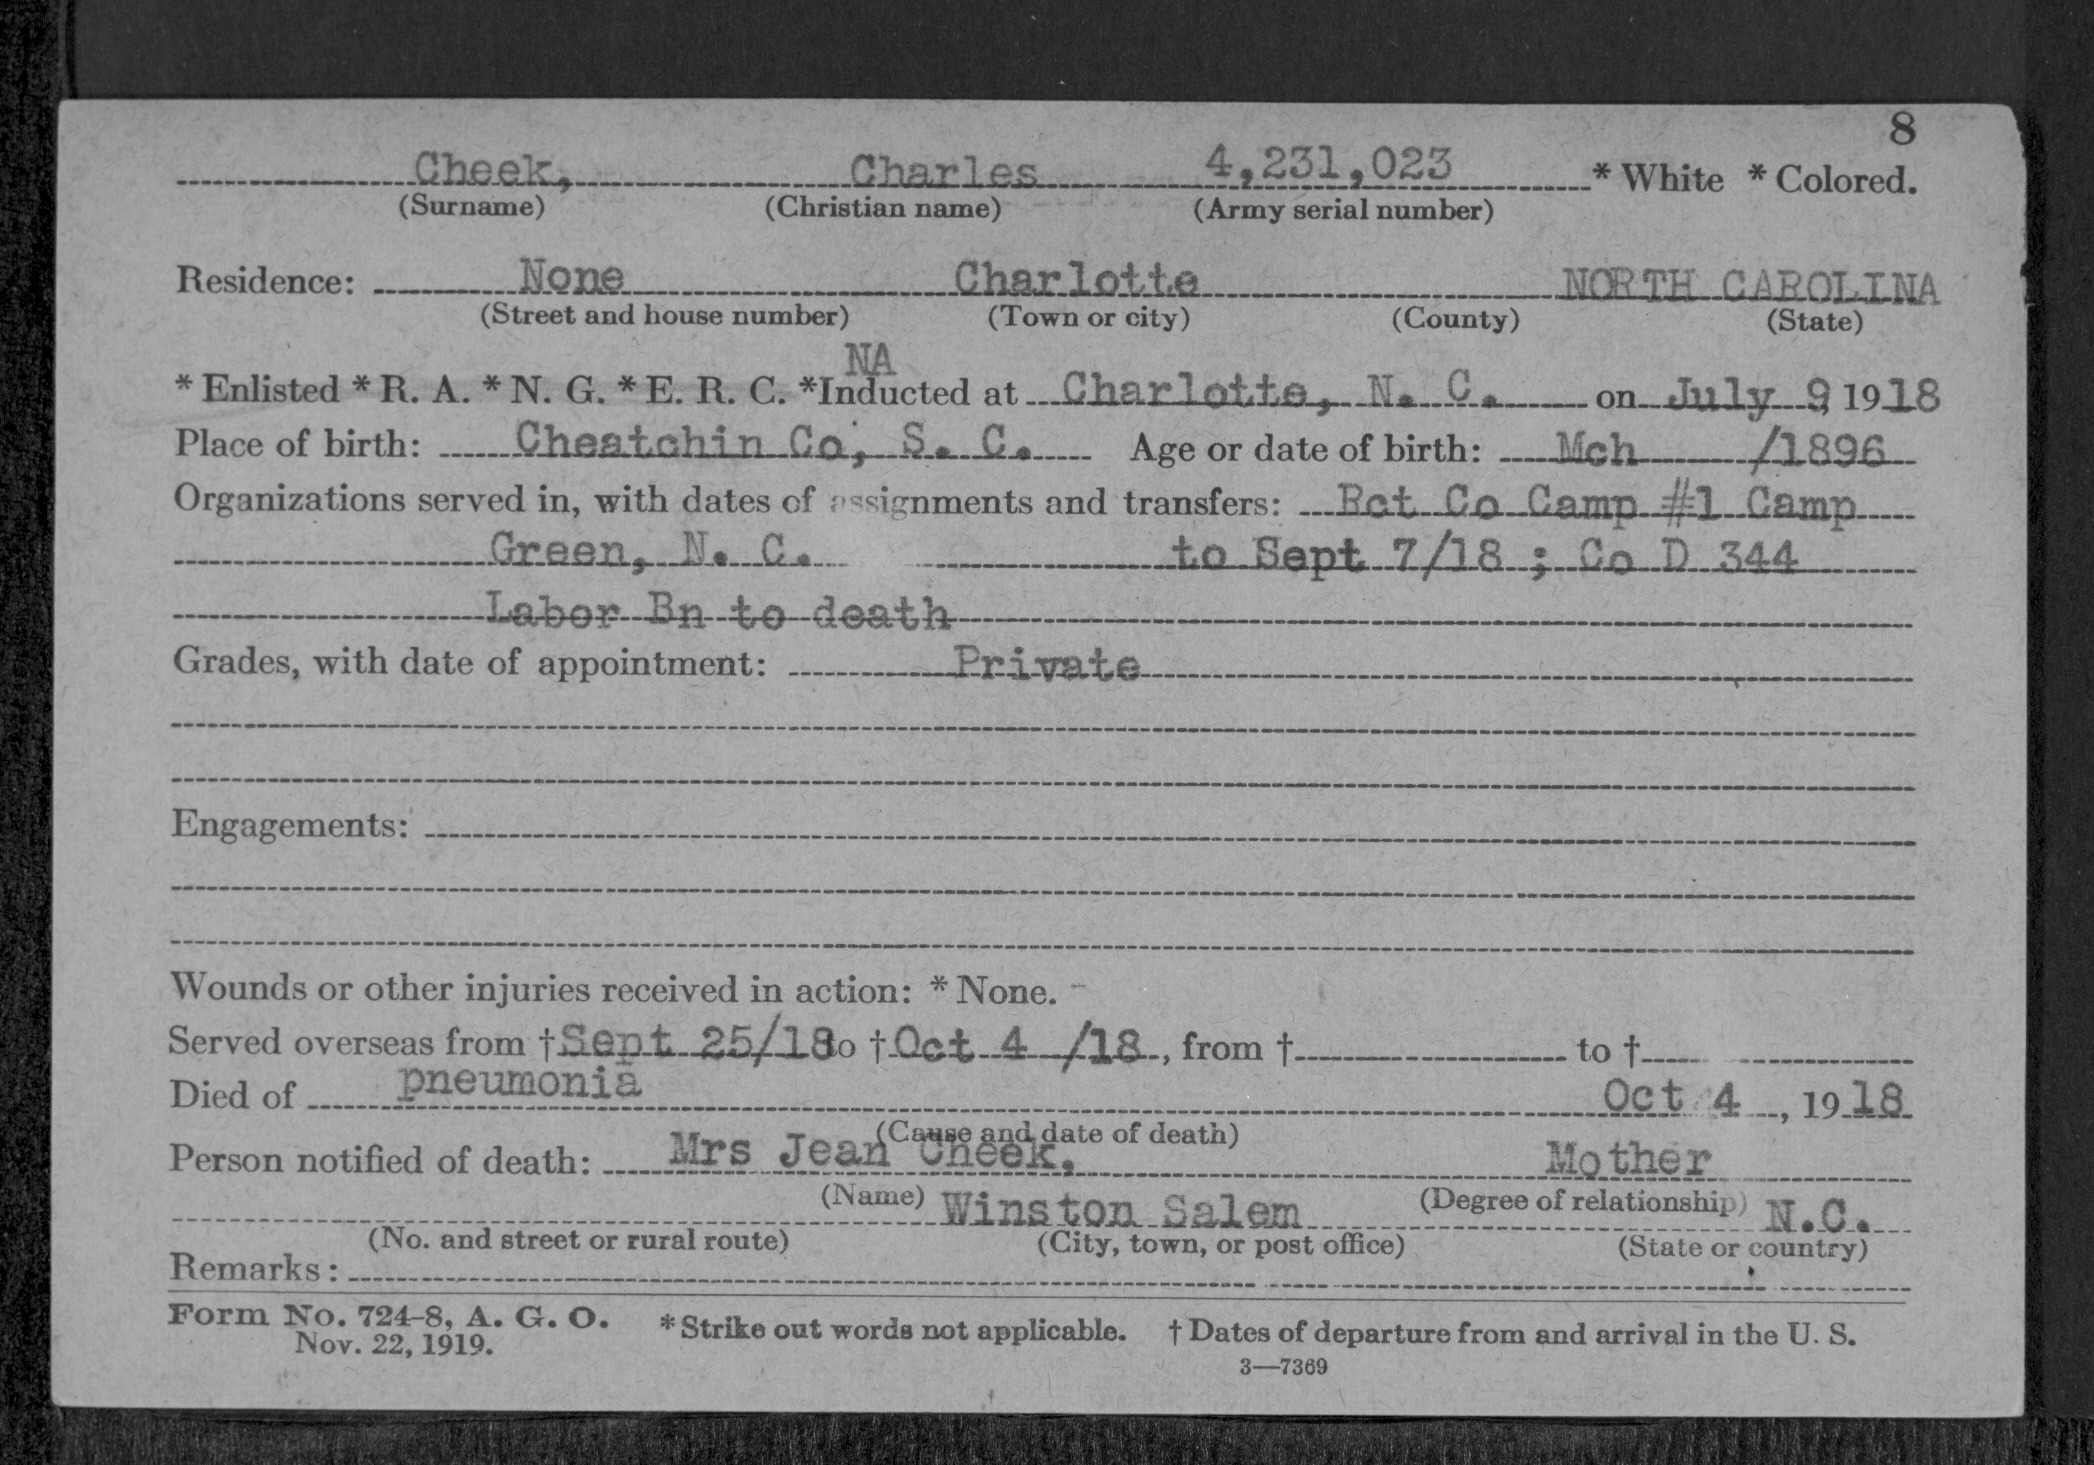 8
Cheek, Charles 4,231,023 * White * Colored.
(Surname) (Christian name) (Army serial number)
Residence: None Charlotte NORTH CAROLINA
(Street and house number) (Town or city) (County) (State)
NA
* Enlisted * R. A. * N. G. * E. R. C. *Inducted at Charlotte, N. C. on July 9, 1918
Place of birth: Cheatchin Co, S. C. Age or date of birth: Mch /1896
Organizations served in, with dates of assignments and transfers: Rct Co Camp #1 Camp
Green, N. C. to Sept 7/18 ; Co D 344
Labor Bn to death
Grades, with date of appointment: Private
Engagements:
Wounds or other injuries received in action: * None. -
Served overseas from † Sept 25/18 to † Oct 4 /18, from † to †
Died of pneumonia Oct 4, 1918
(Cause and date of death)
Person notified of death: Mrs Jean Cheek, Mother
(Name) (Degree of relationship)
Winston Salem N.C.
(No. and street or rural route) (City, town, or post office) (State or country)
Remarks:
Form No. 724-8, A. G. O. * Strike out words not applicable. † Dates of departure from and arrival in the U. S.
Nov. 22, 1919.
3—7369